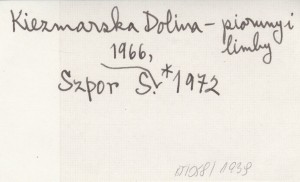 Kiezmarska Dolina - pioruny i
limby
1966,
Szpor S. *1972
1939